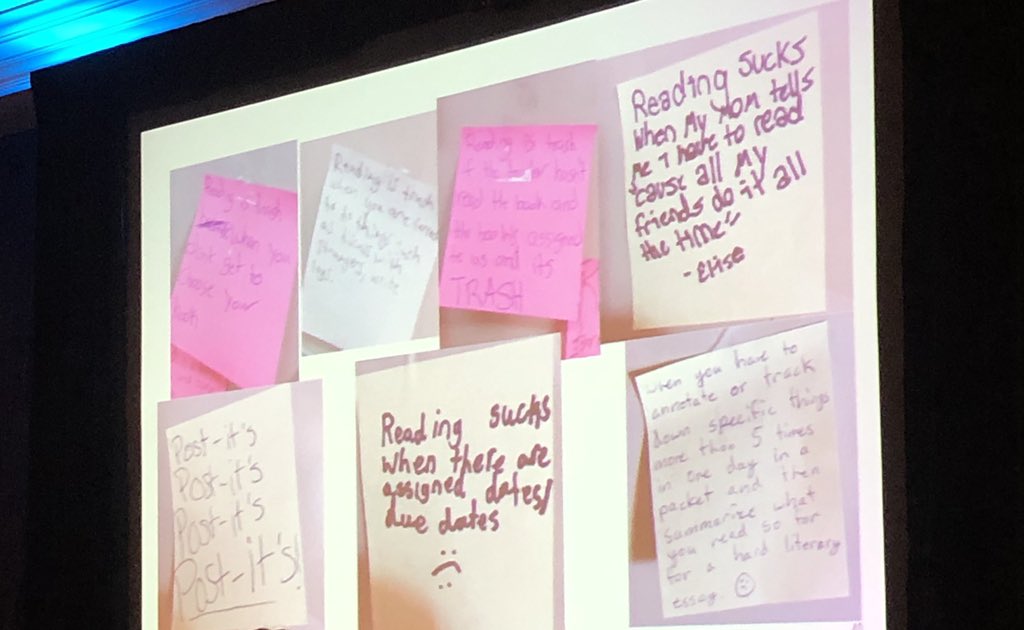 Reading is trash
when you
don't get to
choose your
book
Reading is trash
when you are forced
to do things such
as
Reading is trash
if the teacher hasn't
read the book and
the book is assigned
to us and its
TRASH
Reading sucks
when My Mom tells
me I have to read
'cause all my
friends do it all
the time"
-Elise
Post-it's
Post-it's
Post-it's
Post-it's!
Reading sucks
when there are
assigned dates/
due dates
when you have to
annotate or track
down specific things
more than 5 times
in one day in a
packet and then
summarize what
you read so far
for a hard literary
essay.